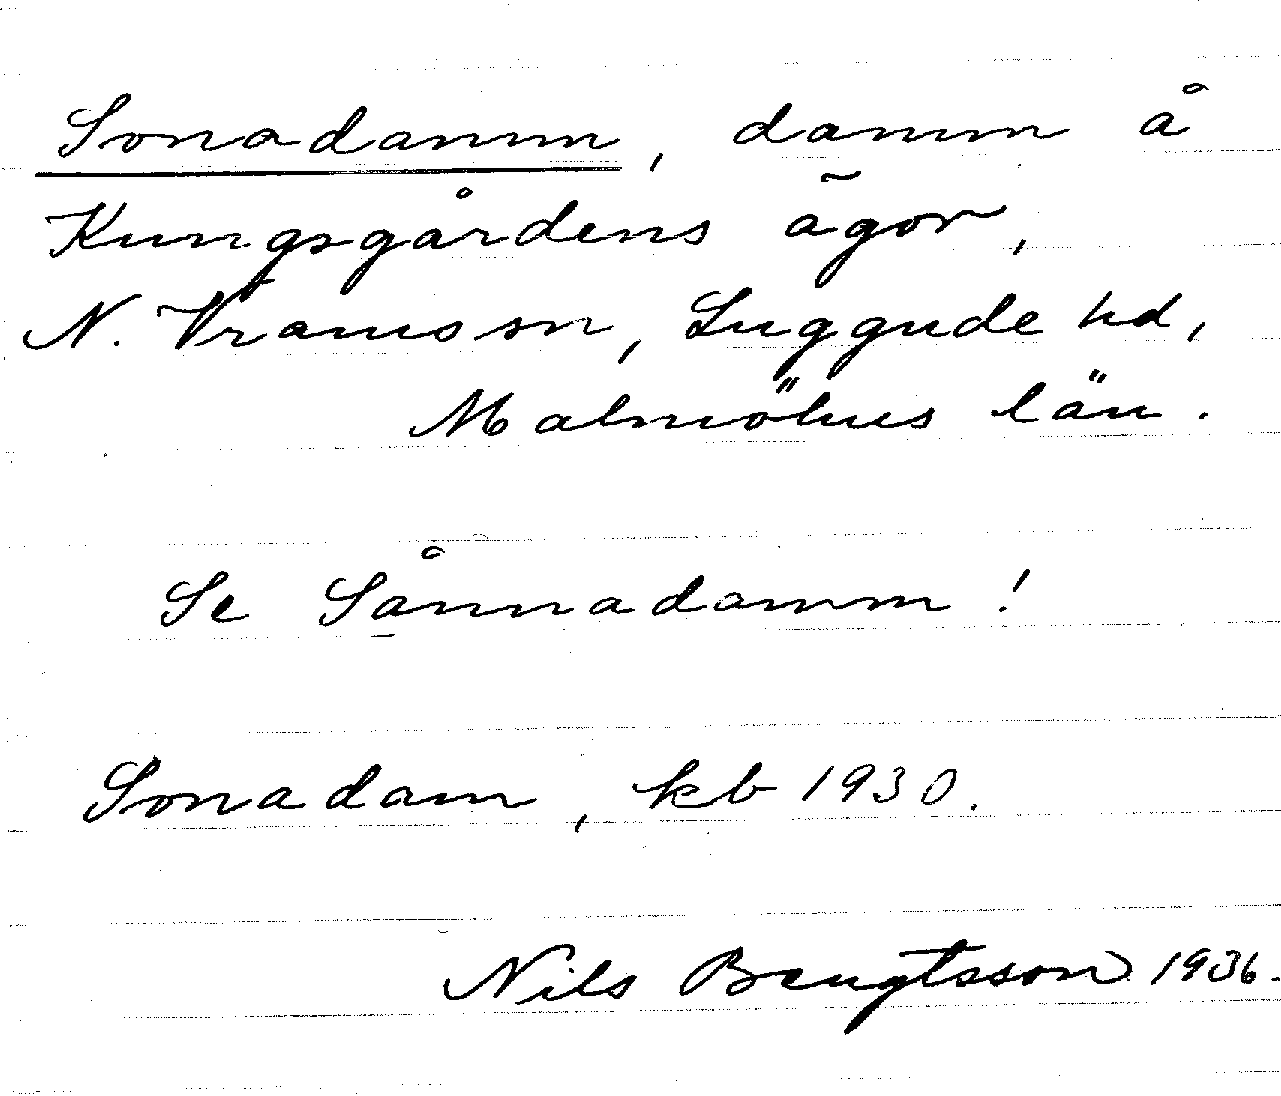 Sonadamm, damm å
Kungsgårdens ägor,
N. Vrams sn, Luggude hd,
Malmöhus län.
Se Sånnadamm!
Sonadam, kb 1930.
Nils Bengtsson 1936.